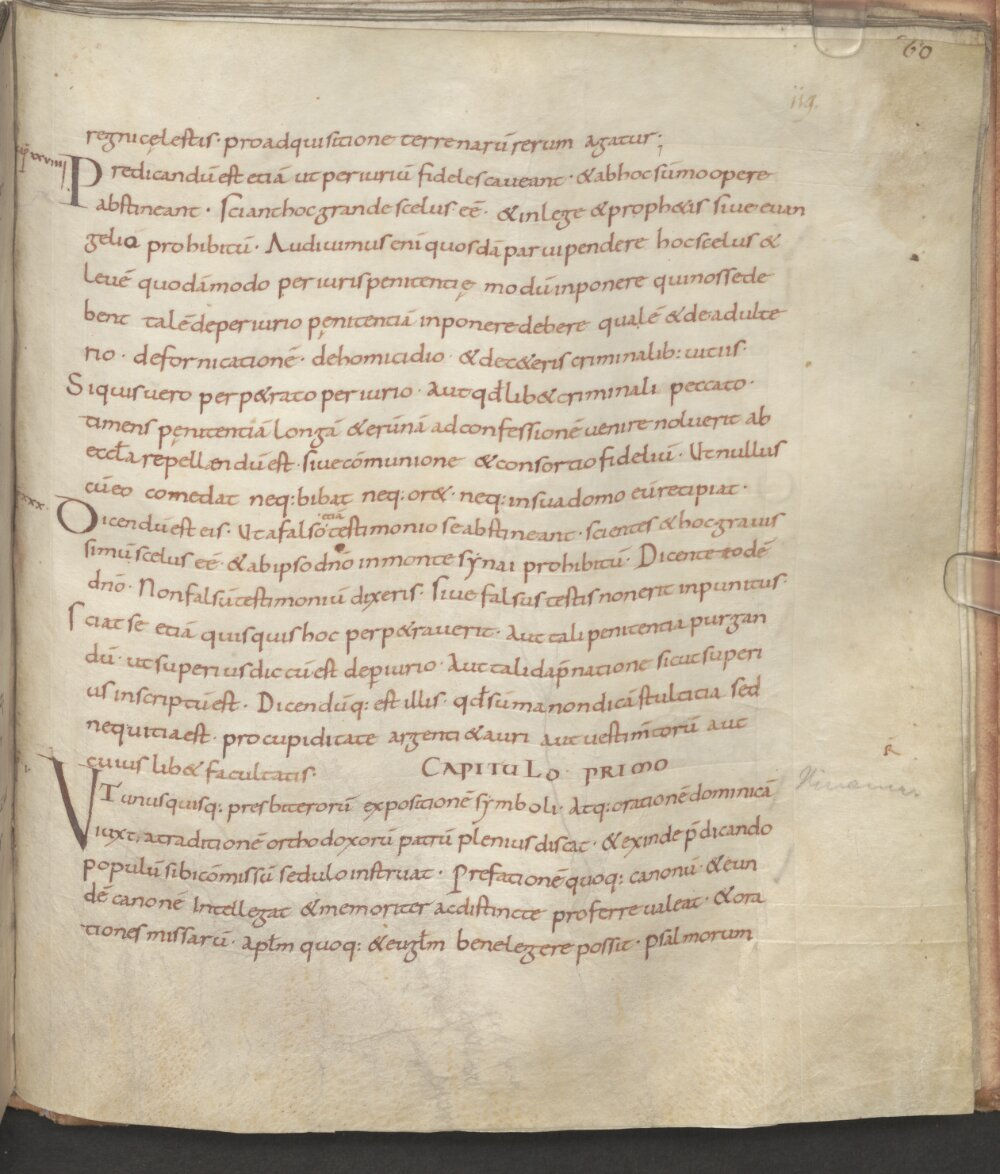 60
119.
regni cęlestis · pro adquisitione terrenarū rerum agatur ;
xxviiii
Predicandū est etiā ut periuriū fideles caveant · & ab hoc sūmo opere
abstineant · Sciant hoc grande scelus eē · & in lege & proph&is sive evan
gelio prohibitū · Audivimus eni quosdā parvi pendere hoc scelus &
levē quodāmodo periuris penitentię modū inponere qui nosse de
bent talē de periurio penitentiā inponere debere qualē & de adulte
rio · de fornicationē · de homicidio · & de c&eris criminalib: vitiis ·
Siquis vero perp&rato periurio · Aut qđlib& criminali peccato ·
timens pęnitentiā longā & erūnā ad confessionē venire noluerit ab
eccła repellaendū est · sive cōmunione & consortio fideliū · Ut nullus
cū eo comedat neq: bibat neq: or& · neq: in sua domo eū recipiat ·
xxx ·
etiā
Dicendū est eis · Ut a falso testimonio se abstineant · scientes & hoc gravis
simū scelus eē · & ab ipso dn̄o in monte synai prohibitū · Dicente eodē
dn̄o · Non falsū testimoniū dixeris · Sive falsus testis non erit inpunitus ·
Sciat se etiā quisquis hoc perp&raverit · Aut tali penitentia purgan
dū · ut superius dictū est de piurio · Aut tali dāpnatione sicut superi
us inscriptū est · Dicendūq: est illis · qđ sūma non dicā stultitia sed
nequitia est · pro cupiditate argenti & auri aut vestim̄torū aut
cuiuslib& facultatis ·
CAPITULO PRIMO
I ·
R
Hincmar
VT unusquisq: presbiterorū expositionē symboli · Atq: orationē dominicā
iuxta traditionē orthodoxorū patrū plenius discat · & exinde p̄dicando
populū sibi cōmissū sedulo instruat · Prefationē quoq: canonū · & eun
dē canonē Intellegat & memoriter ac distincte proferre valeat · & ora
tiones missarū · apłm quoq: & evgłm bene legere possit · psalmorum